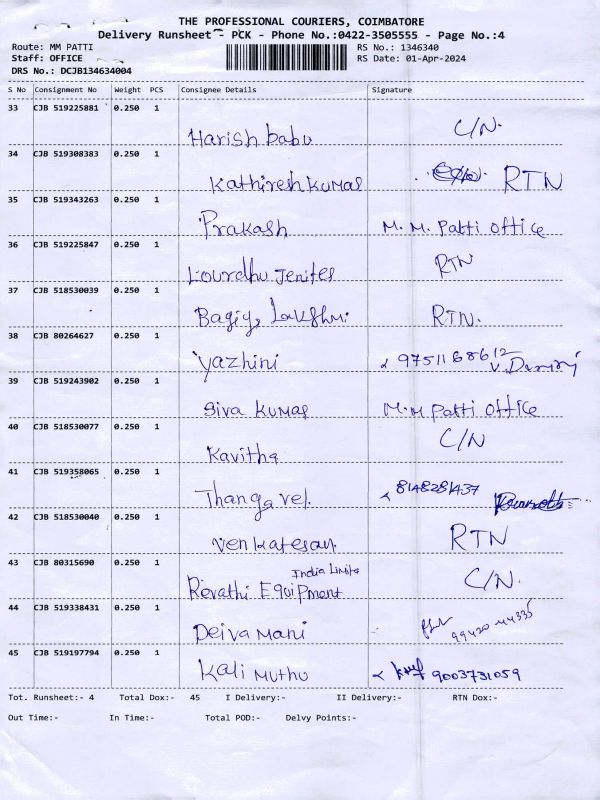 THE PROFESSIONAL COURIERS, COIMBATORE
Delivery Runsheet - PCK - Phone No.:0422-3505555 - Page No.:4
Route: MM PATTI RS No.: 1346340
Staff: OFFICE RS Date: 01-Apr-2024
DRS No.: DCJB134634004
S No Consignment No Weight PCS Consignee Details Signature
33 CJB 519225881 0.250 1
Harish babu C/N.
34 CJB 519308383 0.250 1
Kathiresh Kumar RTN
35 CJB 519343263 0.250 1
Prakash M. M. Patti office
36 CJB 519225847 0.250 1
Lourdhu Jenifer RTN
37 CJB 518530039 0.250 1
Lakshmi RTN.
38 CJB 80264627 0.250 1
Yazhini 9751168612
39 CJB 519243902 0.250 1
Siva Kumar M.M Patti Office
40 CJB 518530077 0.250 1
Kavitha C/N
41 CJB 519358065 0.250 1
Thangavel. 8148281437
42 CJB 518530040 0.250 1
Venkatesan RTN
43 CJB 80315690 0.250 1
India Limite
Revathi Equipment C/N.
44 CJB 519338431 0.250 1
Deiva Mani 99420 44335
45 CJB 519197794 0.250 1
Kali Muthu 9003731059
Tot. Runsheet:- 4 Total Dox:- 45 I Delivery:- II Delivery:- RTN Dox:-
Out Time:- In Time:- Total POD:- Delvy Points:-